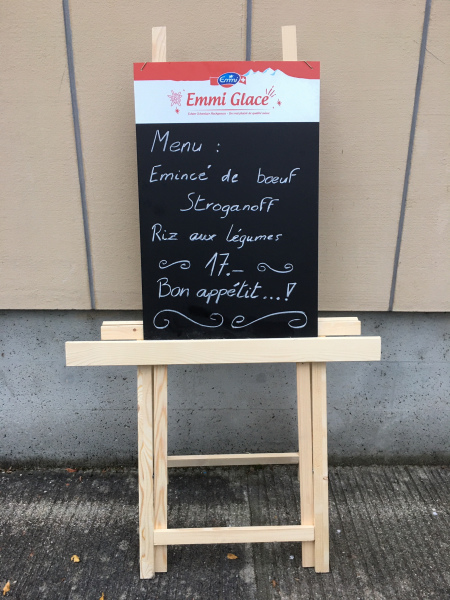 Emmi
Emmi Glace
Menu :
Emincé de bœuf
Stroganoff
Riz aux légumes
17.-
Bon appétit...!